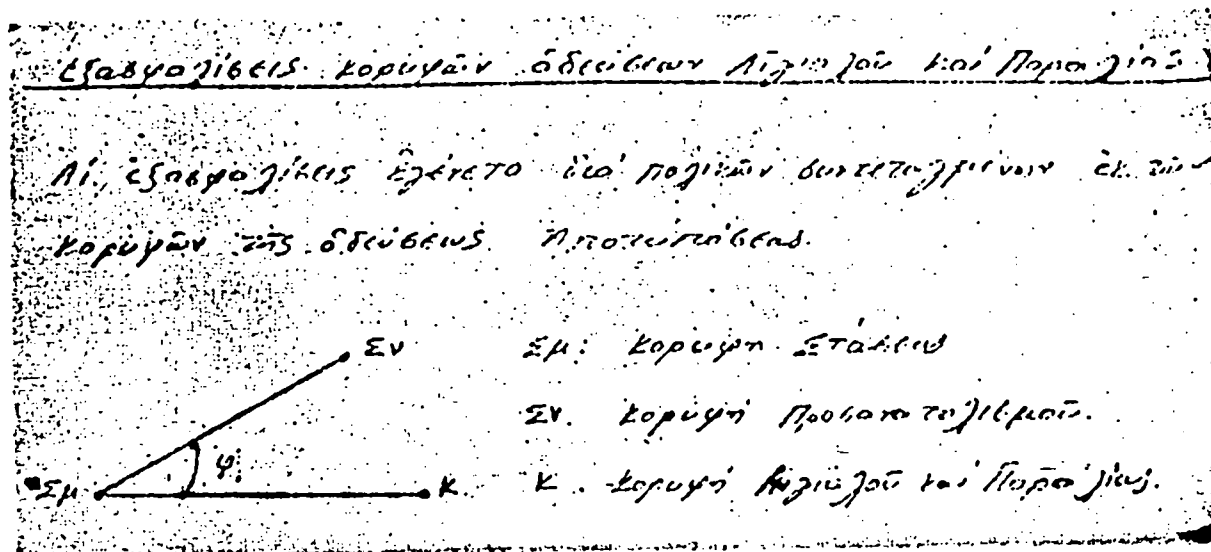 Ἐξασφαλίσεις κορυφῶν ὁδεύσεων Αἰγιαλοῦ καί Παραλίας
Αἱ ἐξασφαλίσεις ἐγένετο διά πολικῶν συντεταγμένων ἐκ τῶν
κορυφῶν τῆς ὁδεύσεως Ἀποτυπώσεως.
Σν Σμ: Κορυφή Στάσεως
Σν. Κορυφή Προσανατολισμοῦ.
φ
Σμ Κ Κ. Κορυφή Αἰγιαλοῦ καί Παραλίας.